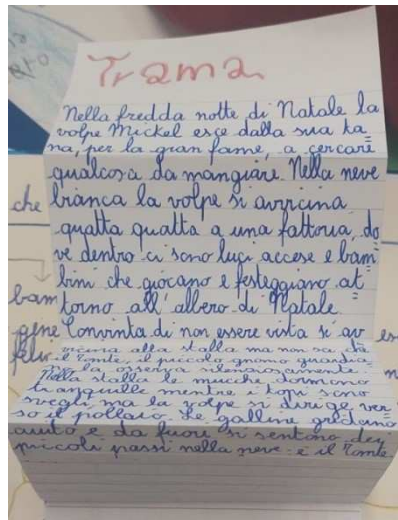 Trama
Nella fredda notte di Natale la
volpe Mickel esce dalla sua ta=
na, per la gran fame, a cercare
qualcosa da mangiare. Nella neve
bianca la volpe si avvicina
quatta quatta a una fattoria, do=
ve dentro ci sono luci accese e bam=
bini che giocano e festeggiano at=
torno all'albero di Natale.
Convinta di non essere vista si av=
vicina alla stalla ma non sa che
il Tomte, il piccolo gnomo guardia=
no la osserva silenziosamente.
Nella stalla le mucche dormono
tranquille mentre i topi sono
svegli ma la volpe si dirige ver
so il pollaio. Le galline gridano
aiuto e da fuori si sentono dei
piccoli passi nella neve: è il Tomte
che
bam
gene
felic